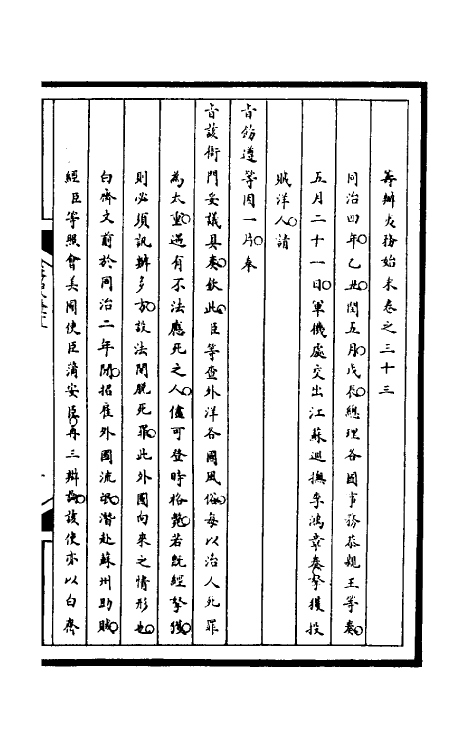 籌辦夷務始末卷之三十三
同治四年乙丑閏五月戊辰總理各國事務恭親王等奏
五月二十一日軍機處交出江蘇巡撫李鴻章奏拏獲投
賊洋人請
旨飭遵等因一片奉
旨該衙門妥議具奏欽此臣等查外洋各國風俗每以治人死罪
為太重遇有不法應死之人儘可登時格斃若既經拏獲
則必須訊辦多方設法開脫死罪此外國向來之情形也
白齊文前於同治二年間招雇外國流氓潛赴蘇州助賊
經臣等照會美國使臣蒲安臣再三辯論該使亦以白齊